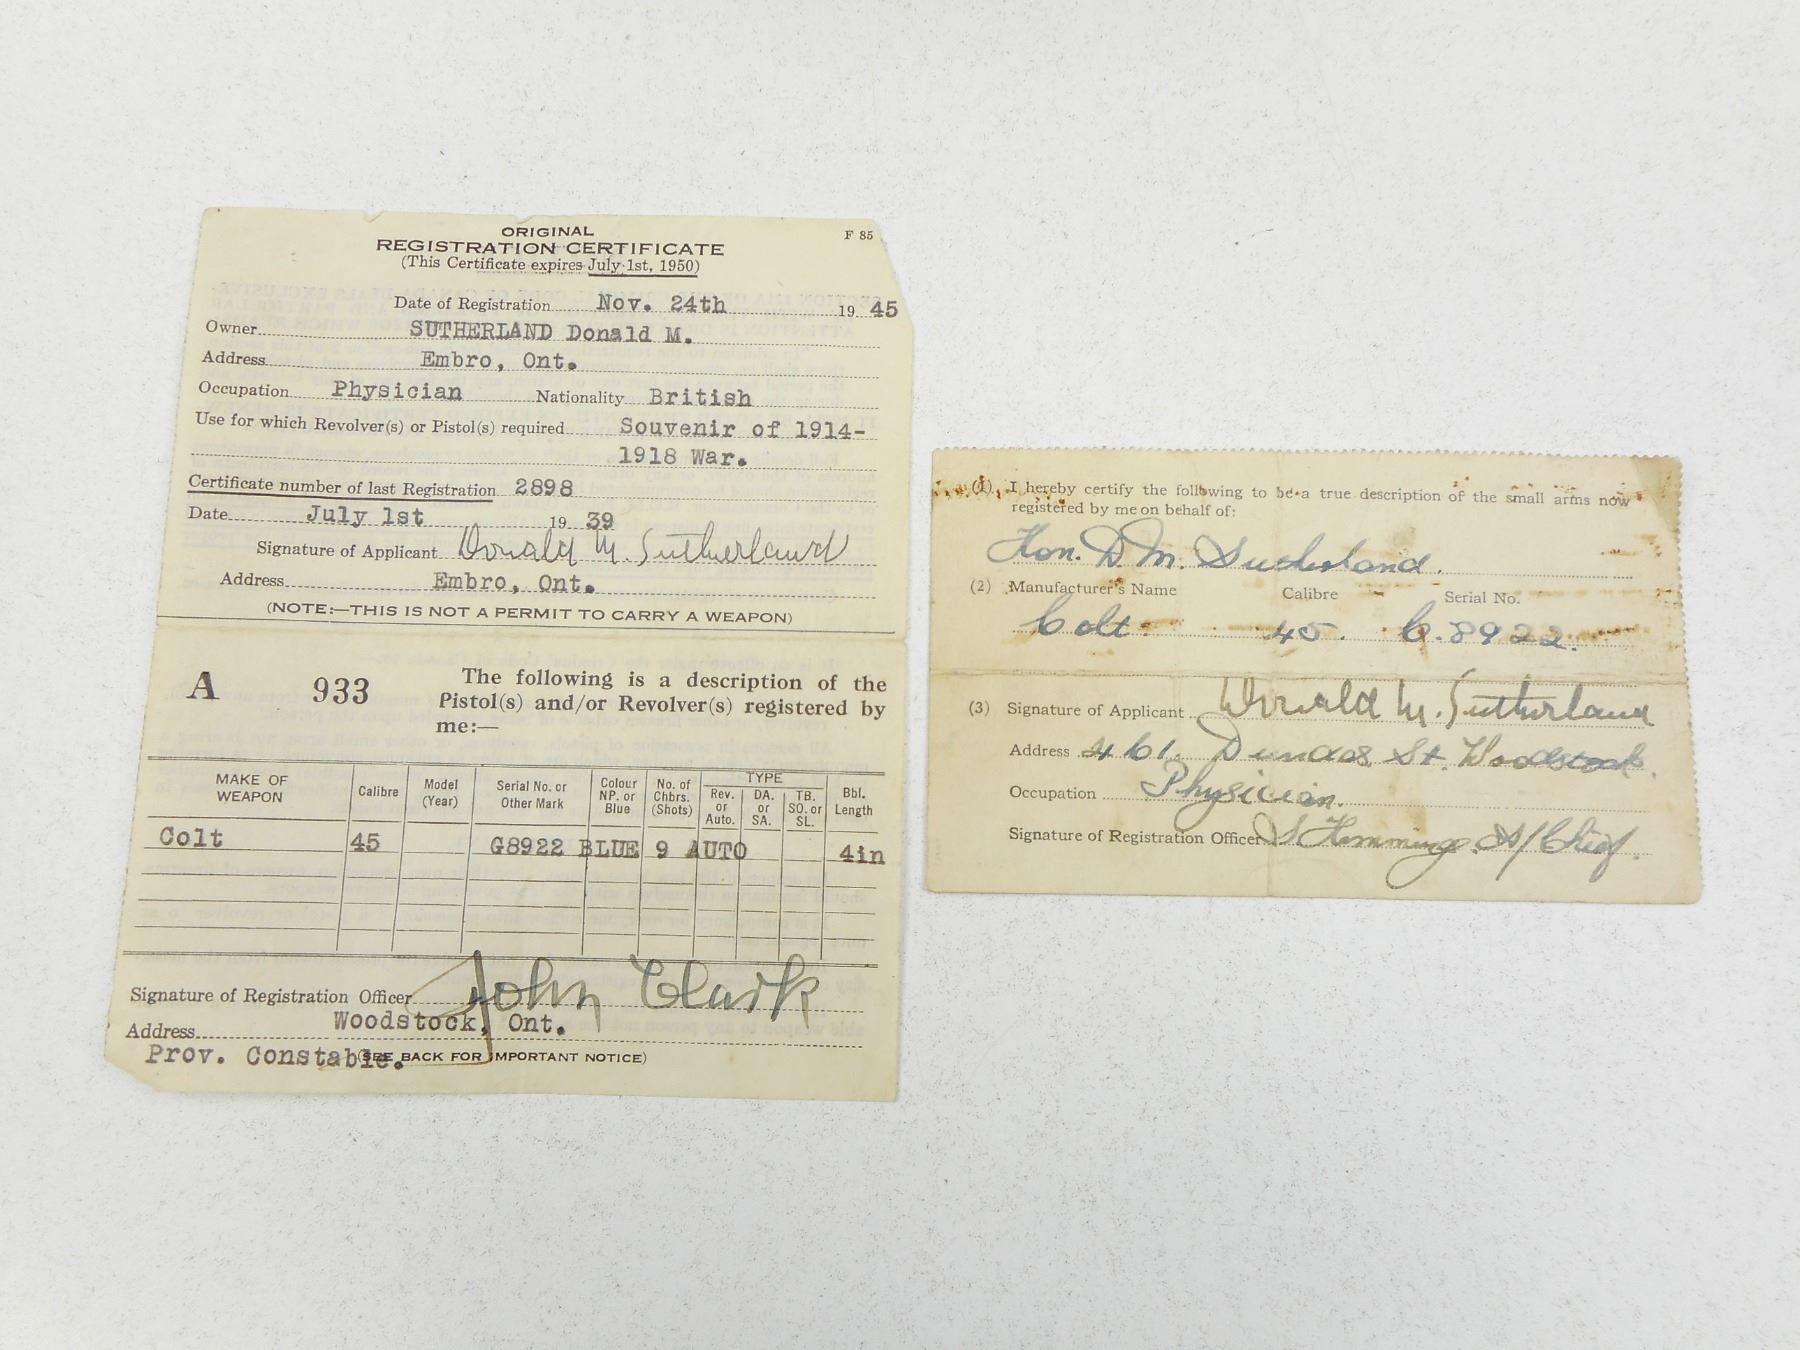 ORIGINAL
F 85
REGISTRATION CERTIFICATE
(This Certificate expires July 1st, 1950)
Date of Registration Nov. 24th 19 45
Owner SUTHERLAND Donald M.
Address Embro, Ont.
Occupation Physician Nationality British
Use for which Revolver(s) or Pistol(s) required Souvenir of 1914-
1918 War.
Certificate number of last Registration 2898
Date July 1st 19 39
Signature of Applicant Donald M. Sutherland
Address Embro, Ont.
(NOTE:—THIS IS NOT A PERMIT TO CARRY A WEAPON)
A 933
The following is a description of the
Pistol(s) and/or Revolver(s) registered by
me:—
MAKE OF WEAPON Calibre Model (Year) Serial No. or Other Mark Colour NP. or Blue No. of Chbrs. (Shots) TYPE Rev. or Auto. DA. or SA. TB. SO. or SL. Bbl. Length
Colt 45 G8922 BLUE 9 AUTO 4in
Signature of Registration Officer John Clark
Address Woodstock, Ont.
Prov. Constable. (SEE BACK FOR IMPORTANT NOTICE)
(1) I hereby certify the following to be a true description of the small arms now
registered by me on behalf of:
Hon. D. M. Sutherland.
(2) Manufacturer's Name Calibre Serial No.
Colt. 45. C. 8922.
(3) Signature of Applicant Donald M. Sutherland
Address 461. Dundas St. Woodstock.
Occupation Physician.
Signature of Registration Officer S Hemming. A/Chief.